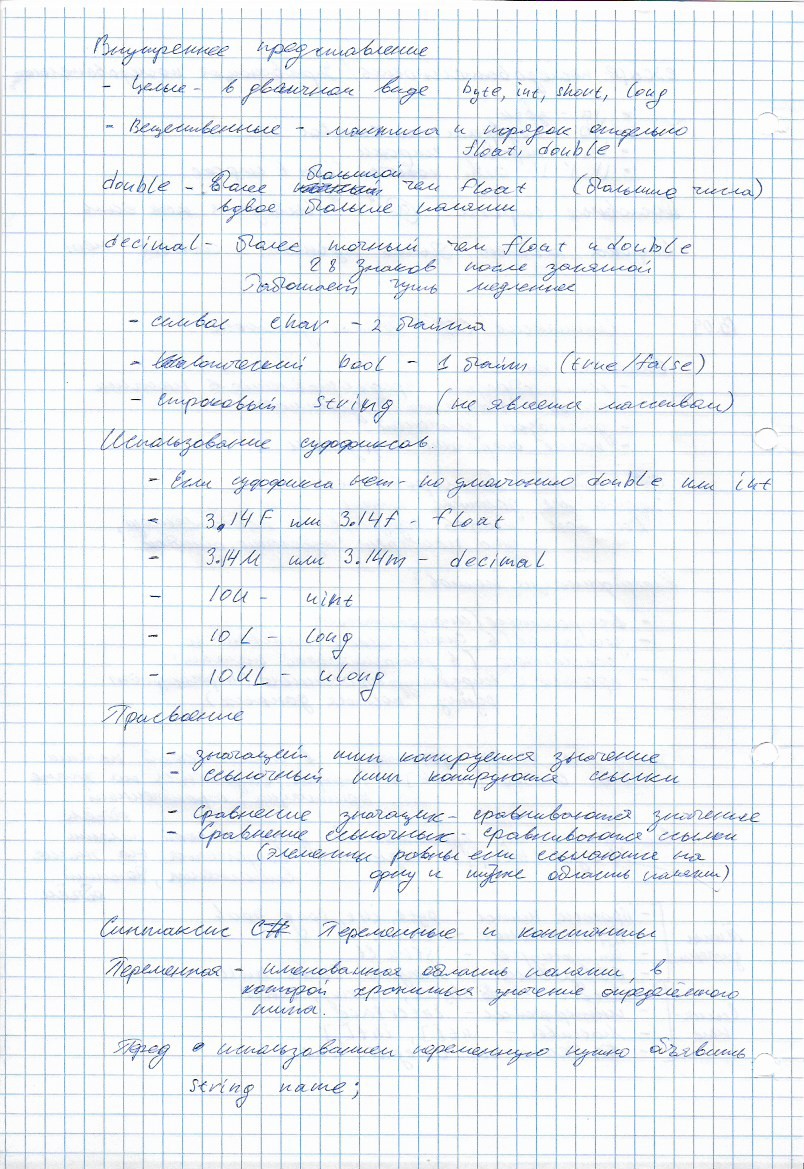 Внутреннее представление
- Целые - в двоичном виде byte, int, short, long
- Вещественные - мантисса и порядок отдельно
float, double
double - более большой чем float (большие числа)
вдвое больше памяти
decimal - более точный чем float и double
28 знаков после запятой
Работает чуть медленнее
- символ char - 2 байта
- логический bool - 1 байт (true/false)
- строковый string (не является массивом)
Использование суффиксов.
- Если суффикса нет - по умолчанию double или int
- 3.14F или 3.14f - float
- 3.14M или 3.14m - decimal
- 10U - uint
- 10L - long
- 10UL - ulong
Присвоение
- значащий тип копируется значение
- ссылочный тип копируются ссылки
- Сравнение значащих - сравниваются значение
- Сравнение ссылочных - сравниваются ссылки
(элементы равны если ссылаются на
одну и ту же область памяти)
Синтаксис C# Переменные и константы
Переменная - именованная область памяти, в
которой хранится значение определённого
типа.
Перед использованием переменную нужно объявить
string name;